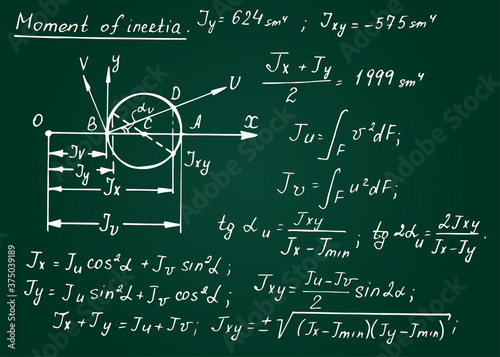 Moment of inertia. Jy = 624 sm⁴ ; Jxy = -575 sm⁴
(Jx + Jy)/2 = 1999 sm⁴
V y U
D
αu
O B C A x
Jv Jxy
Jy
Jx
Jv
Ju = ∫F v²dF;
Jv = ∫F u²dF;
tg αu = Jxy/(Jx - Jmin) ; tg 2αu = 2Jxy/(Jx-Jy).
Jx = Ju cos²α + Jv sin²α ;
Jy = Ju sin²α + Jv cos²α ;
Jxy = (Ju-Jv)/2 sin2α ;
Jx + Jy = Ju + Jv ; Jxy = ±√(Jx-Jmin)(Jy-Jmin) ;
Adobe Stock | #375039189